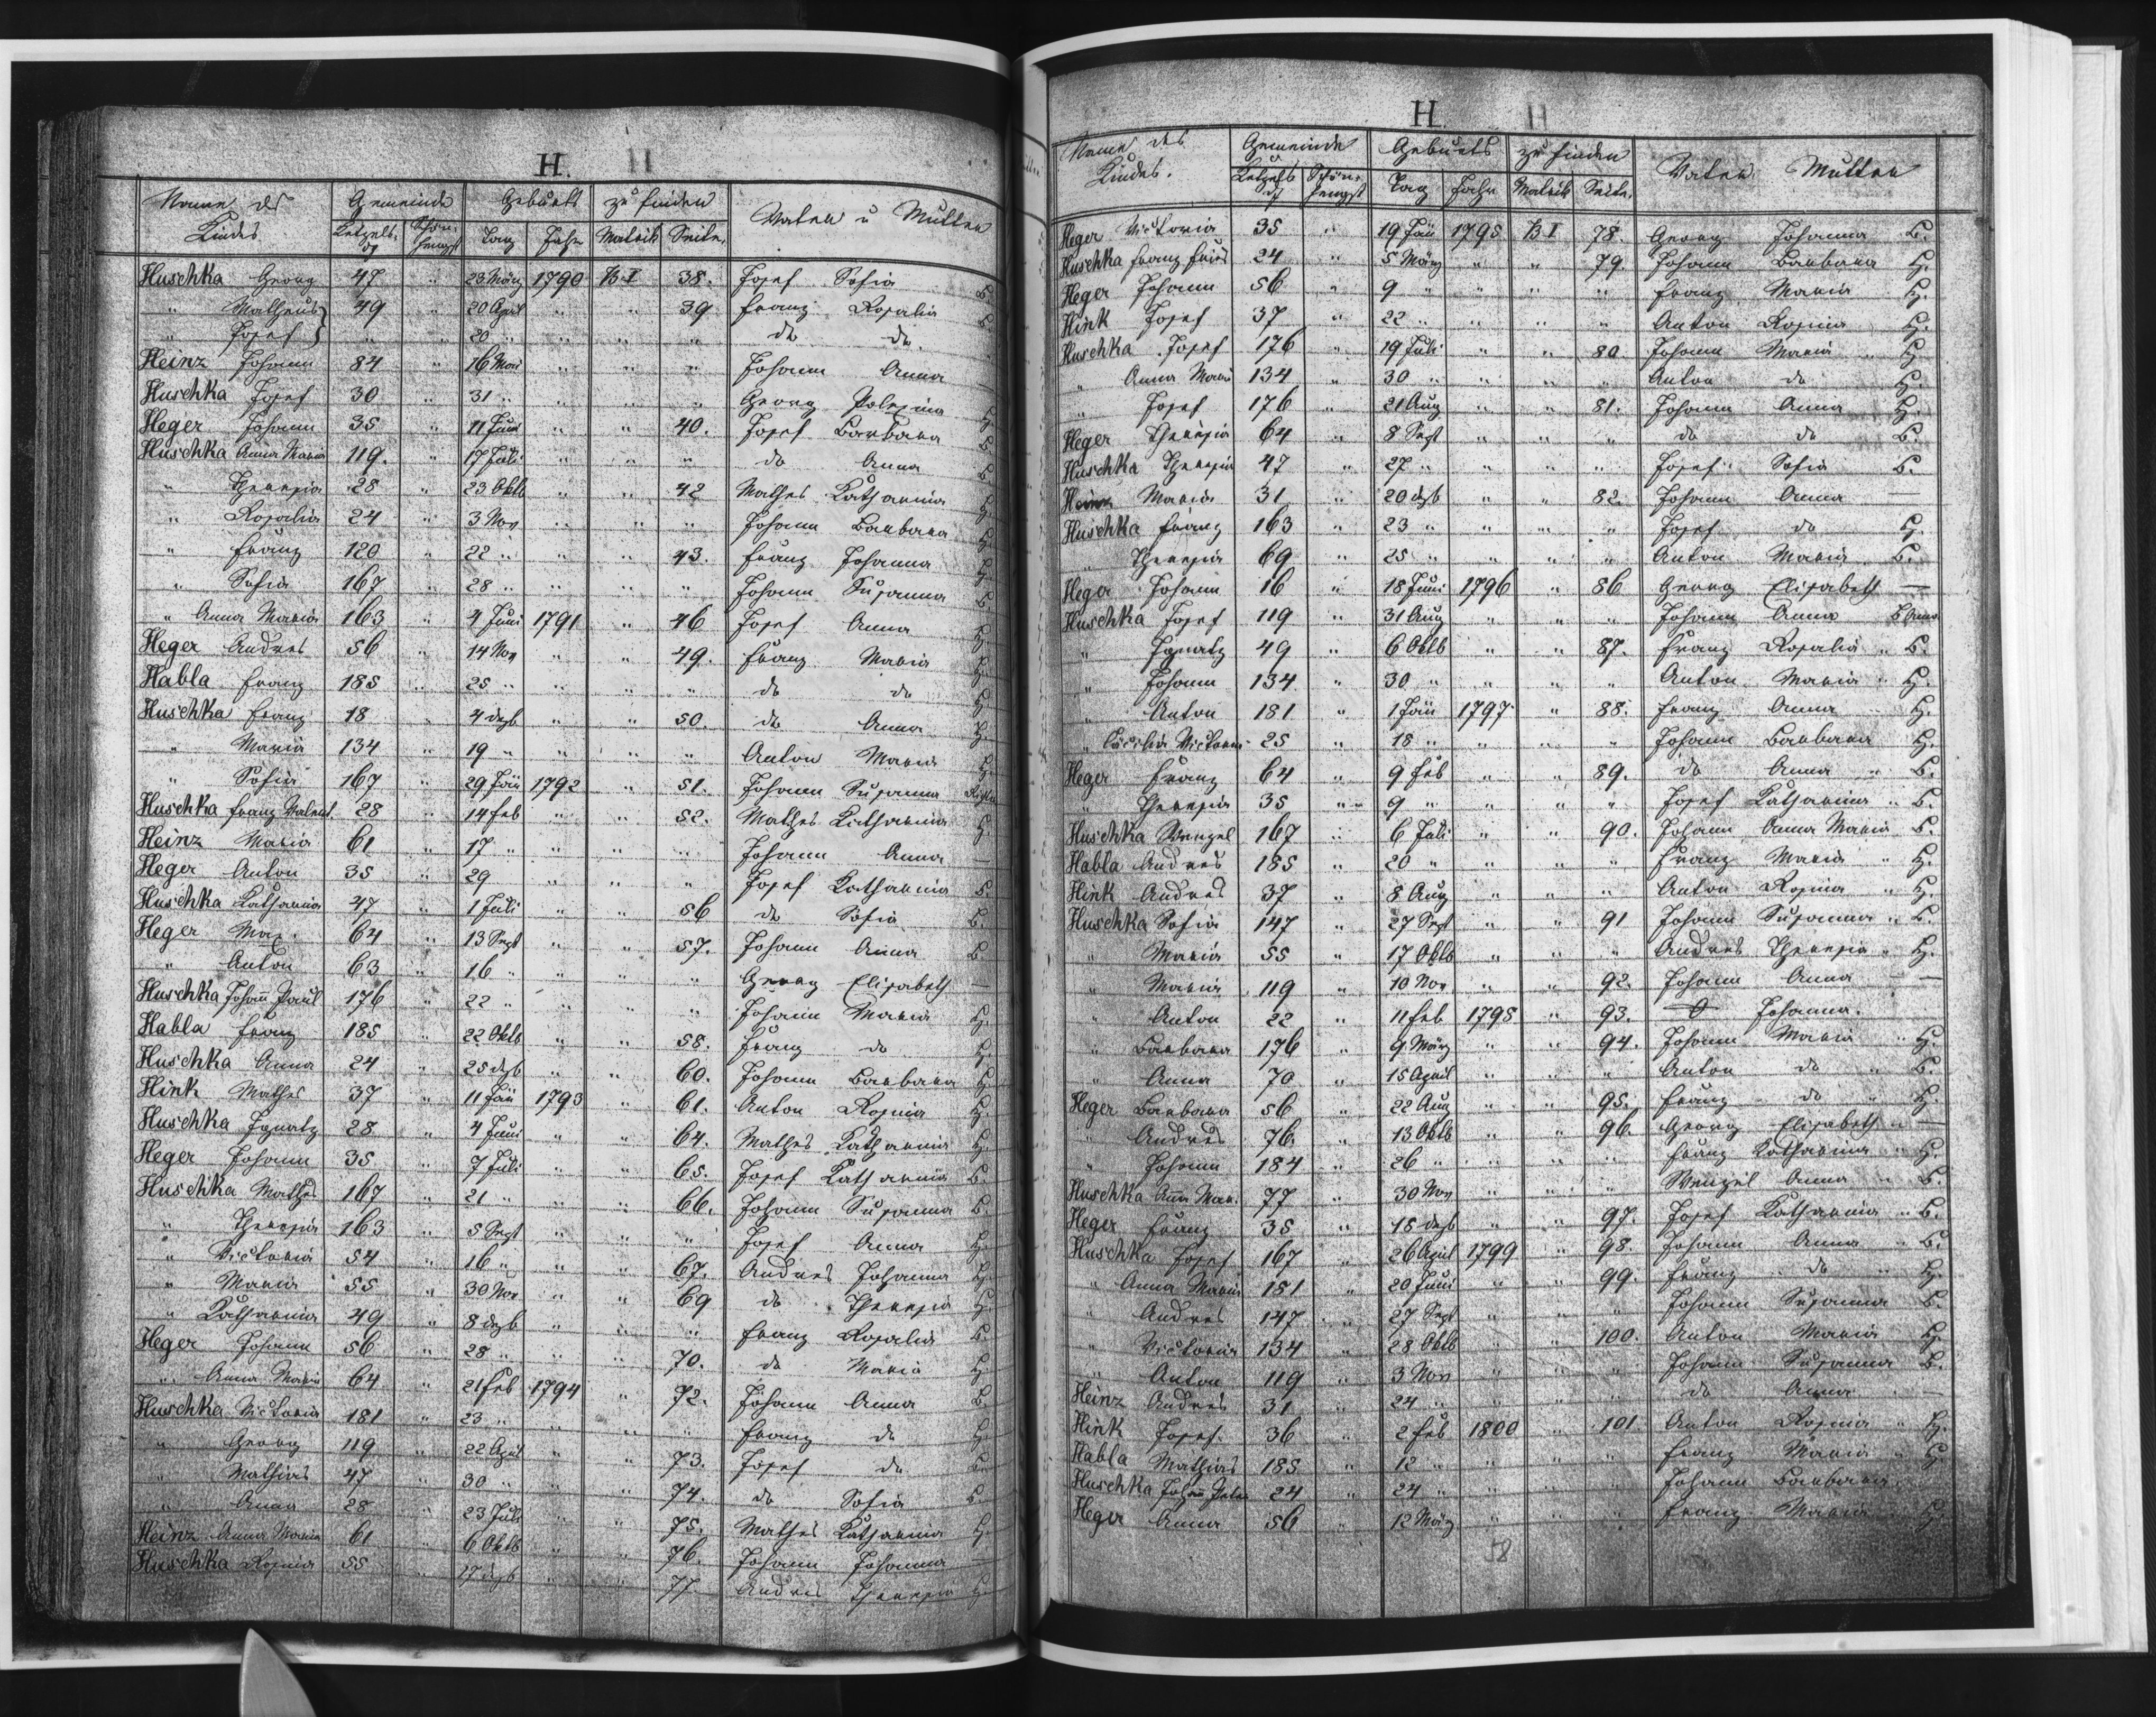 H.
Name des Kindes Gemeinde Geburts zu finden Vater u Mutter
Ketzelsdf Schönhengst Tag Jahr Matrik Seite
Huschka Georg 47 " 23 März 1790 B I 38. Josef Sofia B
" Matheus 49 " 20 April " " 39 Franz Rosalia B
" Josef " " 20 " " " " do do
Heinz Johann 84 " 16 Mai " " " Johann Anna —
Huschka Josef 30 " 31 " " " " Georg Polexina H
Heger Johann 35 " 11 Juni " " 40. Josef Barbara B
Huschka Anna Maria 119. " 17 Juli " " " do Anna B
" Theresia 28 " 23 Oktb " " 42 Mathes Katharina H
" Rosalia 24 " 3 Nov " " " Johann Barbara H
" Franz 120 " 22 " " " 43. Franz Johanna H
" Sofia 167 " 28 " " " " Johann Susanna B
" Anna Maria 163 " 4 Juni 1791 " 46 Josef Anna H
Heger Andres 56 " 14 Nov " " 49. Franz Maria H
Habla Franz 185 " 25 " " " " do do H
Huschka Franz 18 " 4 dezb " " 50. do Anna H
" Maria 134 " 19 " " " " Anton Maria H
" Sofia 167 " 29 Jän 1792 " 51. Johann Susanna
Huschka Franz Valent. 28 " 14 Feb " " 52. Mathes Katharina H
Heinz Maria 61 " 17 " " " " Johann Anna —
Heger Anton 35 " 29 " " " Josef Katharina B.
Huschka Katharina 47 " 1 Juli " " 56 do Sofia B.
Heger Max. 64 " 13 Sept " " 57. Johann Anna B
" Anton 63 " 16 " " " " Georg Elisabeth —
Huschka Johann Paul 176 " 22 " " " " Johann Maria H
Habla Franz 185 " 22 Oktb " " 58. Franz do H
Huschka Anna 24 " 25 dezb " " 60. Johann Barbara H
Hink Mathes 37 " 11 Jän 1793 " 61. Anton Rosina H
Huschka Ignatz 28 " 4 Juni " " 64. Mathes Katharina H
Heger Johann 35 " 7 Juli " " 65. Josef Katharina B.
Huschka Mathes 167 " 21 " " " 66. Johann Susanna B.
" Theresia 163 " 5 Sept " " " Josef Anna H
" Victoria 54 " 16 " " " 67. Andres Johanna H
" Maria 55 " 30 Nov " " 69 do Theresia H
" Katharina 49 " 8 dezb " " " Franz Rosalia B.
Heger Johann 56 " 28 " " " 70. do Maria H
" Anna Maria 64 " 21 Feb 1794 " 72. Johann Anna B.
Huschka Victoria 181 " 23 " " " " Franz do H
" Georg 119 " 22 April " " 73. Josef do B.
" Mathias 47 " 30 " " " 74. do Sofia B.
" Anna 28 " 23 Juli " " 75. Mathes Katharina H.
Heinz Anna Maria 61 " 6 Oktb " " 76. Johann Johanna —
Huschka Rosina 55 " 17 dezb " " 77. Andres Theresia H
H.
Name des Kindes. Gemeinde Geburts zu finden Vater Mutter
Ketzelsdf Schönhengst Tag Jahr Matrik Seite.
Heger Victoria 35 " 19 Jän 1795 B I 78. Georg Johanna B.
Huschka Franz 24 " 5 März " " 79. Johann Barbara H.
Heger Johann 56 " 9 " " " " Franz Maria H.
Hink Josef 37 " 22 " " " " Anton Rosina H.
Huschka Josef 176 " 19 Juli " " 80. Johann Maria H
" Anna Maria 134 " 30 " " " " Anton do H.
" Josef 176 " 21 Aug " " 81. Johann Anna H.
Heger Theresia 64 " 8 Sept " " " do do B.
Huschka Theresia 47 " 27 " " " " Josef Sofia B.
Heinz Maria 31 " 20 dezb " " 82 Johann Anna —
Huschka Franz 163 " 23 " " " " Josef do H.
" Theresia 69 " 25 " " " " Anton Maria B.
Heger Johann 16 " 18 Juni 1796 " 86 Georg Elisabeth —
Huschka Josef 119 " 31 Aug " " " Johann Anna
" Ignatz 49 " 6 Oktb " " 87. Franz Rosalia " B.
" Johann 134 " 30 " " " " Anton Maria " H.
" Anton 181 " 1 Jän 1797 " 88. Franz Anna H.
" Cäcilia Victoria 25 " 18 " " " " Johann Barbara H.
Heger Franz 64 " 9 Feb " " 89. do Anna " B.
" Theresia 35 " 9 " " " " Josef Katharina " B.
Huschka Wenzel 167 " 6 Juli " " 90. Johann Anna Maria B.
Habla Andres 185 " 20 " " " " Franz Maria " H.
Hink Andres 37 " 8 Aug " " " Anton Rosina " H.
Huschka Sofia 147 " 27 Sept " " 91 Johann Susanna " B.
" Maria 55 " 17 Oktb " " " Andres Theresia " H.
" Maria 119 " 10 Nov " " 92. Johann Anna —
" Anton 22 " 11 Feb 1798 " 93. Johanna.
" Barbara 176 " 9 März " " 94. Johann Maria " H.
" Anna 70 " 15 April " " " Anton do " B.
Heger Barbara 56 " 22 Aug " " 95. Franz do " H.
" Andres 76. " 13 Oktb " " 96. Georg Elisabeth " —
" Johann 184 " 26 " " " " Franz Katharina " H.
Huschka Anna Mar. 77 " 30 Nov " " " Wenzel Anna " B.
Heger Franz 35 " 18 dezb " " 97. Josef Katharina " B.
Huschka Josef 167 " 26 April 1799 " 98. Johann Anna " B.
" Anna Maria 181 " 20 Juni " " 99. Franz do " H.
" Andres 147 " 27 Sept " " " Johann Susanna B.
" Victoria 134 " 28 Oktb " " 100. Anton Maria H
" Anton 119 " 3 Nov " " " Johann Susanna B.
Heinz Andres 31 " 24 " " " " do Anna —
Hink Josef 36 " 2 Feb 1800 " 101. Anton Rosina " H.
Habla Mathias 185 " 12 " " " " Franz Maria " H
Huschka Johann 24 " 24 " " " " Johann Barbara
Heger Anna 56 " 12 März " " " Franz Maria H
58